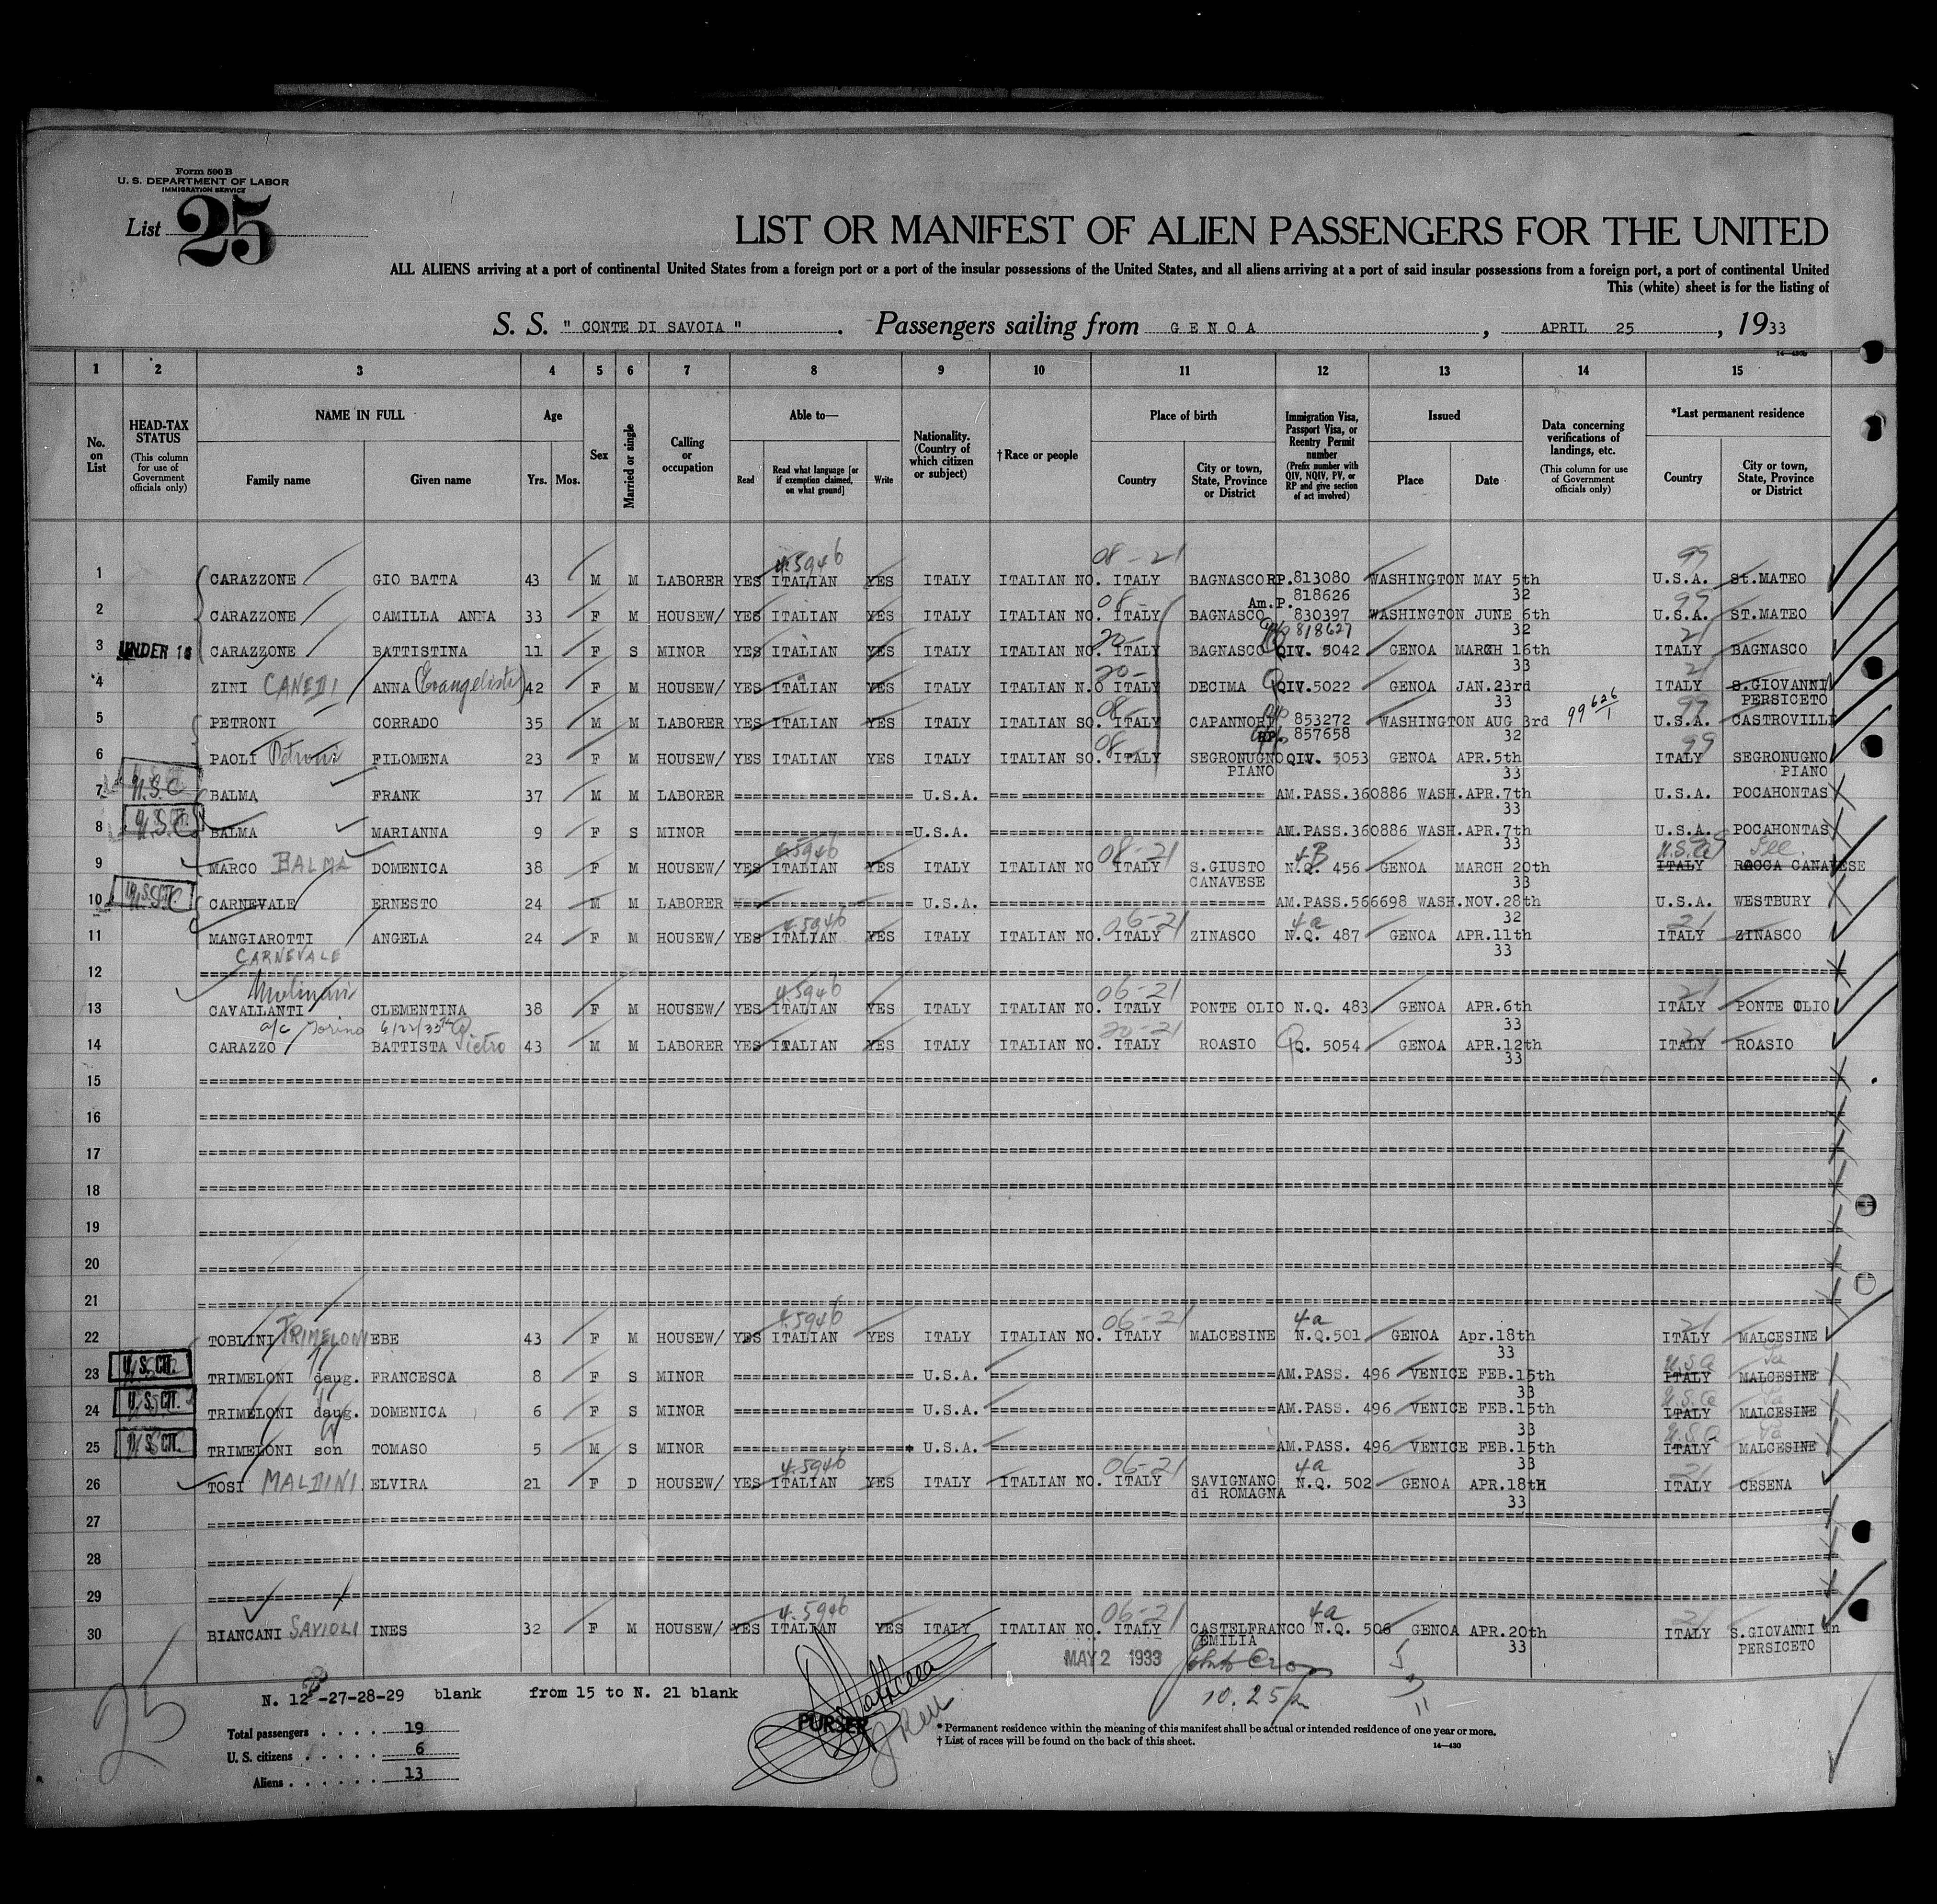 Form 500 B
U. S. DEPARTMENT OF LABOR
IMMIGRATION SERVICE
List 25
LIST OR MANIFEST OF ALIEN PASSENGERS FOR THE UNITED
ALL ALIENS arriving at a port of continental United States from a foreign port or a port of the insular possessions of the United States, and all aliens arriving at a port of said insular possessions from a foreign port, a port of continental United
This (white) sheet is for the listing of
S. S. " CONTE DI SAVOIA " . Passengers sailing from GENOA , APRIL 25 , 1933
1 2 3 4 5 6 7 8 9 10 11 12 13 14 15
No. on List
HEAD-TAX STATUS (This column for use of Government officials only)
NAME IN FULL Family name Given name
Age Yrs. Mos.
Sex
Married or single
Calling or occupation
Able to— Read Read what language [or if exemption claimed, on what ground] Write
Nationality. (Country of which citizen or subject)
† Race or people
Place of birth Country City or town, State, Province or District
Immigration Visa, Passport Visa, or Reentry Permit number (Prefix number with QIV, NQIV, PV, or RP and give section of act involved)
Issued Place Date
Data concerning verifications of landings, etc. (This column for use of Government officials only)
*Last permanent residence Country City or town, State, Province or District
4.5946 08-21 99
1 CARAZZONE GIO BATTA 43 M M LABORER YES ITALIAN YES ITALY ITALIAN NO. ITALY BAGNASCO RP. 813080 WASHINGTON MAY 5th U.S.A. St. MATEO
818626 32
08- Am.P. 99
2 CARAZZONE CAMILLA ANNA 33 F M HOUSEW/ YES ITALIAN YES ITALY ITALIAN NO. ITALY BAGNASCO 830397 WASHINGTON JUNE 6th U.S.A. ST.MATEO
818627 32
20- 21
3 UNDER 16 CARAZZONE BATTISTINA 11 F S MINOR YES ITALIAN YES ITALY ITALIAN NO. ITALY BAGNASCO QIV. 5042 GENOA MARCH 16th ITALY BAGNASCO
20- 33 21
4 ZINI CANEDI ANNA (Evangelista) 42 F M HOUSEW/ YES ITALIAN YES ITALY ITALIAN N.O ITALY DECIMA QIV. 5022 GENOA JAN.23rd ITALY S.GIOVANNI
33 PERSICETO
08- 99
5 PETRONI CORRADO 35 M M LABORER YES ITALIAN YES ITALY ITALIAN SO. ITALY CAPANNORI 853272 WASHINGTON AUG 3rd 99 626/1 U.S.A. CASTROVILLE
RP. 857658 32
08 99
6 PAOLI Petroni FILOMENA 23 F M HOUSEW/ YES ITALIAN YES ITALY ITALIAN SO. ITALY SEGRONUGNO QIV. 5053 GENOA APR.5th ITALY SEGRONUGNO
PIANO 33 PIANO
7 U.S.C BALMA FRANK 37 M M LABORER ===== U.S.A. ===== AM.PASS.360886 WASH.APR.7th U.S.A. POCAHONTAS
33
8 U.S.C BALMA MARIANNA 9 F S MINOR ===== U.S.A. ===== AM.PASS.360886 WASH.APR.7th U.S.A. POCAHONTAS
33
4.5946 08-21 4B U.S.A
9 MARCO BALMA DOMENICA 38 F M HOUSEW/ YES ITALIAN YES ITALY ITALIAN NO. ITALY S.GIUSTO N.Q. 456 GENOA MARCH 20th ITALY ROCCA CANAVESE
CANAVESE 33
10 U.S.C CARNEVALE ERNESTO 24 M M LABORER ===== U.S.A. ===== AM.PASS.566698 WASH.NOV.28th U.S.A. WESTBURY
4.5946 06-21 4a 32 21
11 MANGIAROTTI ANGELA 24 F M HOUSEW/ YES ITALIAN YES ITALY ITALIAN NO. ITALY ZINASCO N.Q. 487 GENOA APR.11th ITALY ZINASCO
CARNEVALE 33
12 =====
Molinari 4.5946 06-21 21
13 CAVALLANTI CLEMENTINA 38 F M HOUSEW/ YES ITALIAN YES ITALY ITALIAN NO. ITALY PONTE OLIO N.Q. 483 GENOA APR.6th ITALY PONTE OLIO
a/c Torino 6/22/33 20-21 33 21
14 CARAZZO BATTISTA Pietro 43 M M LABORER YES ITALIAN YES ITALY ITALIAN NO. ITALY ROASIO Q. 5054 GENOA APR.12th ITALY ROASIO
33
15 =====
16 =====
17 =====
18 =====
19 =====
20 =====
21 =====
4.5946 06-21 4a 21
22 TOBLINI TRIMELONI EBE 43 F M HOUSEW/ YES ITALIAN YES ITALY ITALIAN NO. ITALY MALCESINE N.Q.501 GENOA Apr.18th ITALY MALCESINE
33 U.S.A Pa
23 U.S.CIT. TRIMELONI daug. FRANCESCA 8 F S MINOR ===== U.S.A. ===== AM.PASS. 496 VENICE FEB.15th ITALY MALCESINE
33 U.S.A Pa
24 U.S.CIT. TRIMELONI daug. DOMENICA 6 F S MINOR ===== U.S.A. ===== AM.PASS. 496 VENICE FEB.15th ITALY MALCESINE
33 U.S.A Pa
25 U.S.CIT. TRIMELONI son TOMASO 5 M S MINOR ===== U.S.A. ===== AM.PASS. 496 VENICE FEB.15th ITALY MALCESINE
4.5946 06-21 4a 33 21
26 TOSI MALDINI ELVIRA 21 F D HOUSEW/ YES ITALIAN YES ITALY ITALIAN NO. ITALY SAVIGNANO N.Q. 502 GENOA APR.18tH ITALY CESENA
di ROMAGNA 33
27 =====
28 =====
29 =====
4.5946 06-21 4a 21
30 BIANCANI SAVIOLI INES 32 F M HOUSEW/ YES ITALIAN YES ITALY ITALIAN NO. ITALY CASTELFRANCO N.Q. 506 GENOA APR.20th ITALY S.GIOVANNI in
EMILIA 33 PERSICETO
MAY 2 1933
10.25
25
N. 12-27-28-29 blank from 15 to N. 21 blank
PURSER
Total passengers . . . . 19
U. S. citizens . . . . . 6
Aliens . . . . . . 13
* Permanent residence within the meaning of this manifest shall be actual or intended residence of one year or more.
† List of races will be found on the back of this sheet.
14—430